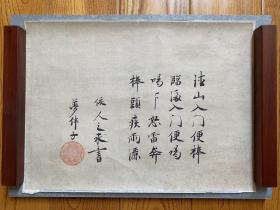 德山入门便棒
臨済入门便喝
喝下怒雷奔
棒頭疾雨
依人之求書
夢伴子